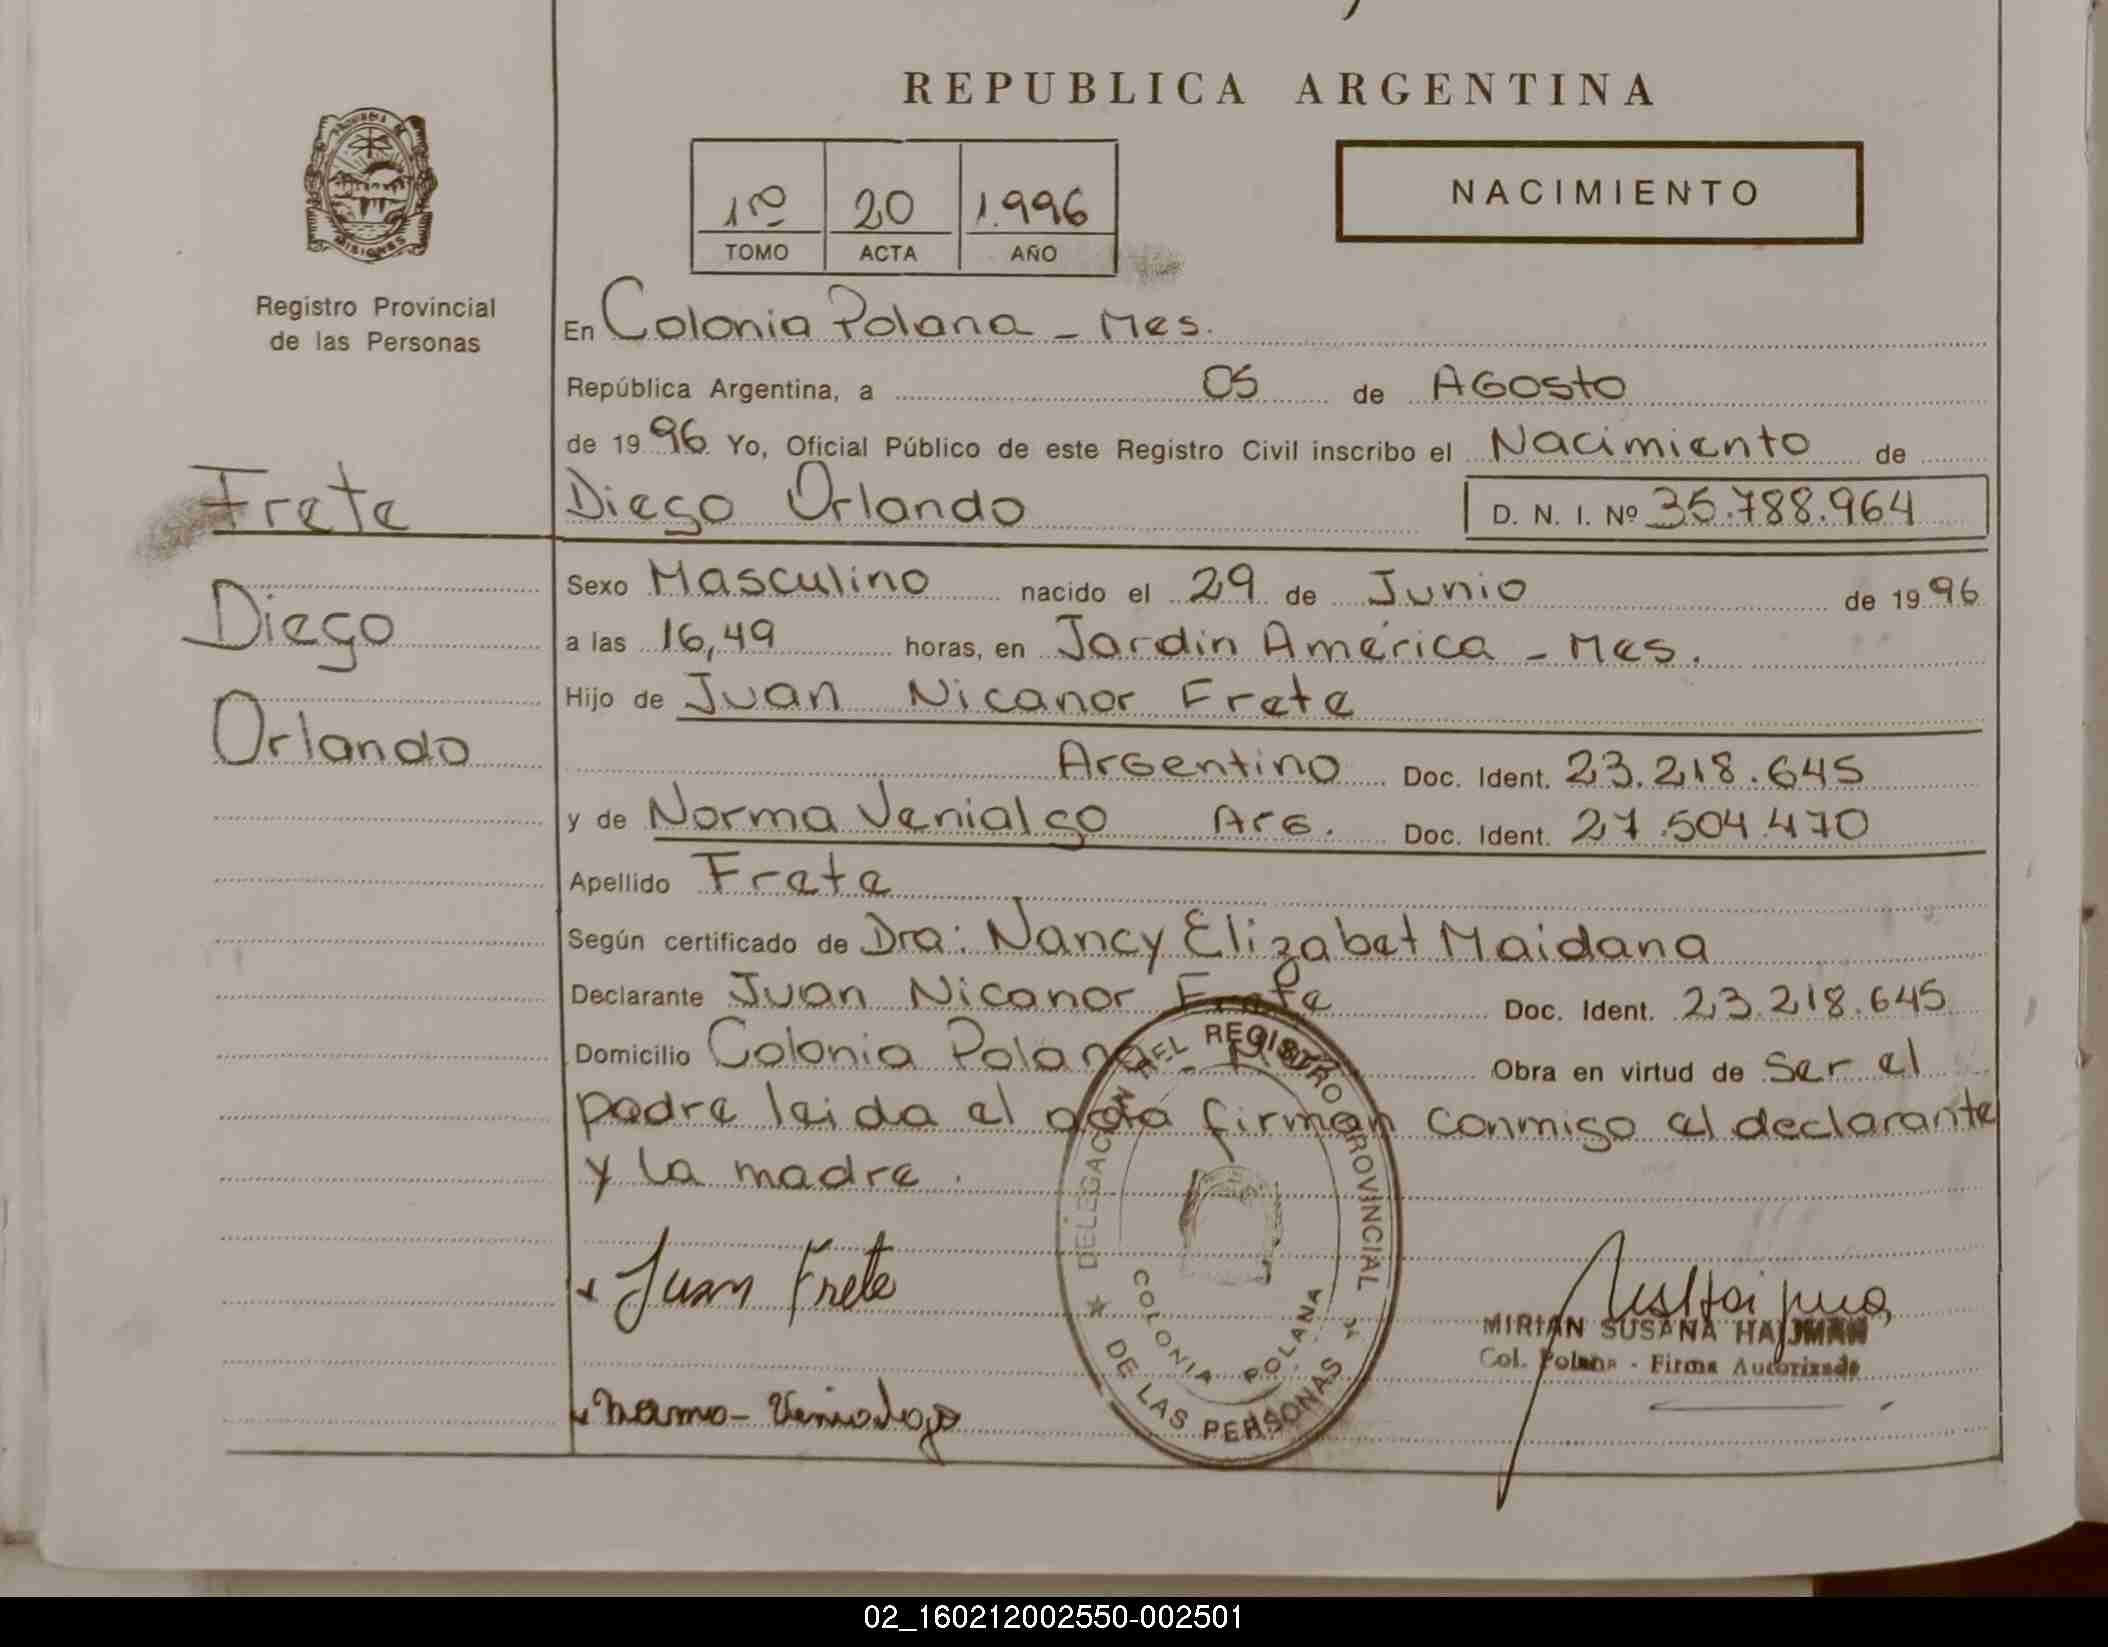 REPUBLICA ARGENTINA
PROVINCIA DE
MISIONES
Registro Provincial
de las Personas
1ro 20 1.996
TOMO ACTA AÑO
NACIMIENTO
En Colonia Polana - Mes.
República Argentina, a 05 de AGosto
de 1996 Yo, Oficial Público de este Registro Civil inscribo el Nacimiento de
Frete
Diego Orlando D. N. I. Nº 35.788.964
Sexo Masculino nacido el 29 de Junio de 1996
Diego
a las 16,49 horas, en Jardín América - Mes.
Hijo de Juan Nicanor Frete
Orlando
Argentino Doc. Ident. 23.218.645
y de Norma Venialgo Arg. Doc. Ident. 27.504.470
Apellido Frete
Según certificado de Dra: Nancy Elizabet Maidana
Declarante Juan Nicanor Frete Doc. Ident. 23.218.645
Domicilio Colonia Polana - Obra en virtud de Ser el
padre leida el acta firman conmigo el declarante
y la madre.
DELEGACION DEL REGISTRO PROVINCIAL
DE LAS PERSONAS
COLONIA POLANA
Juan Frete
MIRIAN SUSANA
Col. Polana - Firma Autorizada
Norma - Venialogo
02_160212002550-002501